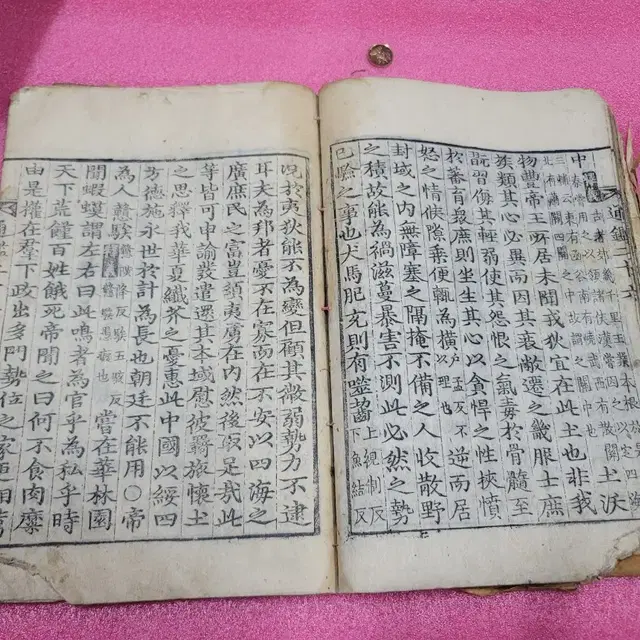 中土沃
物豊帝王所居未聞戎狄宜在此土也非我
族類其心必異而因其衰敝遷之畿服士庶
翫習侮其輕弱使其怨恨之氣毒於骨髓至
於蕃育衆庶則坐生其心以貪悍之性挾憤
怒之情候隙乘便輒為橫戶孟反不以理也逆而居
封域之內無障塞之隔掩不備之人收散野
之積故能為禍滋蔓暴害不測此必然之勢
已驗之事也犬馬肥充則有噬齧上視制反下魚結反
況於夷狄能不為變但顧其微弱勢力不逮
耳夫為邦者憂不在寡而在不安以四海之
廣庶民之富豈須夷虜在內然後取足哉此
等皆可申諭發遣還其本域慰彼羇旅懷土
之思釋我華夏纖芥之憂惠此中國以綏四
方德施永世於計為長也朝廷不能用○帝
為人戇騃嘗在華林園
聞蝦蟇謂左右曰此鳴者為官乎為私乎時
天下荒饉百姓餓死帝聞之曰何不食肉糜
由是權在羣下政出多門勢位之家更相薦